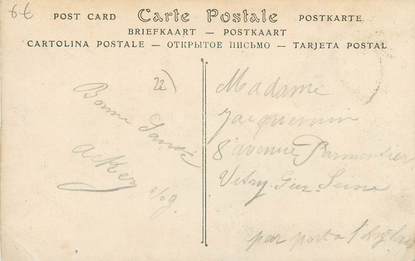 6€
POST CARD Carte Postale POSTKARTE
BRIEFKAART — POSTKAART
CARTOLINA POSTALE — ОТКРЫТОЕ ПИСЬМО — TARJETA POSTAL
22
Bonne Santé
Madame
Jacquemin
8 avenue
Vitry sur Seine
par port à l'Anglais